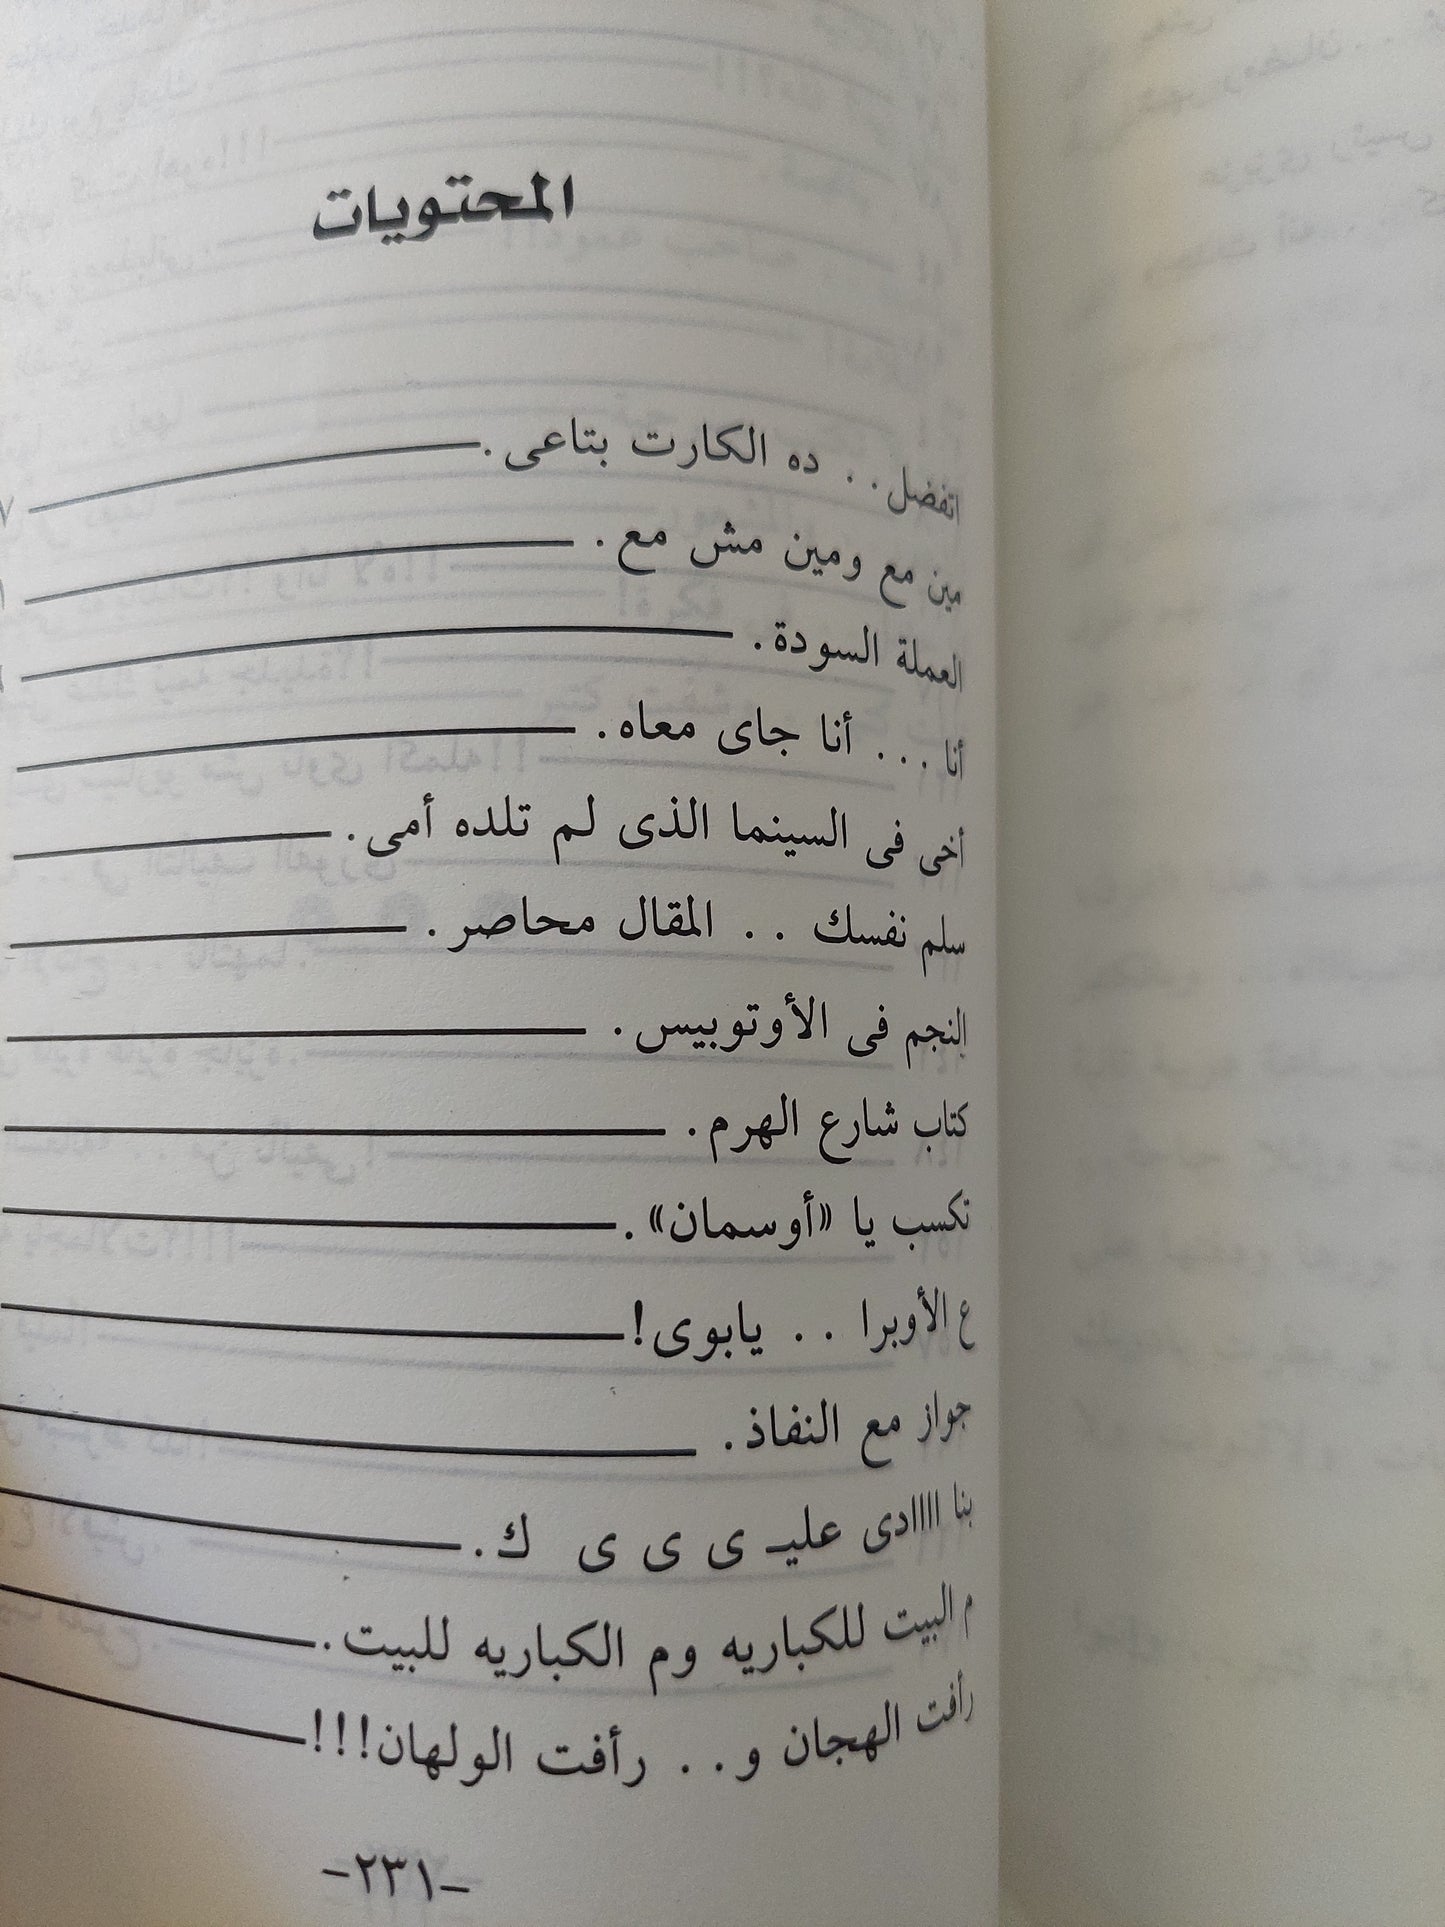 المحتويات
اتفضل . . ده الكارت بتاعى . ٧
مين مع ومين مش مع .
العملة السودة .
أنا . . . أنا جاى معاه .
أخى فى السينما الذى لم تلده أمى .
سلم نفسك . . المقال محاصر .
النجم فى الأوتوبيس .
كتاب شارع الهرم .
تكسب يا «أوسمان» .
ع الأوبرا . . يابوى !
جواز مع النفاذ .
بنا اااادى عليـ ى ى ى ك .
م البيت للكباريه وم الكباريه للبيت .
رأفت الهجان و . . رأفت الولهان !!!
-٢٣١-